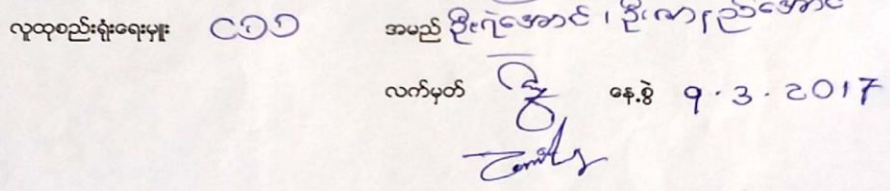 လူထုစည်းရုံးရေးမှူး ၎၁၁ အမည် ဦးရဲအောင် ၊ ဦးဇာနည်အောင်
လက်မှတ် နေ့စွဲ 9.3.2017